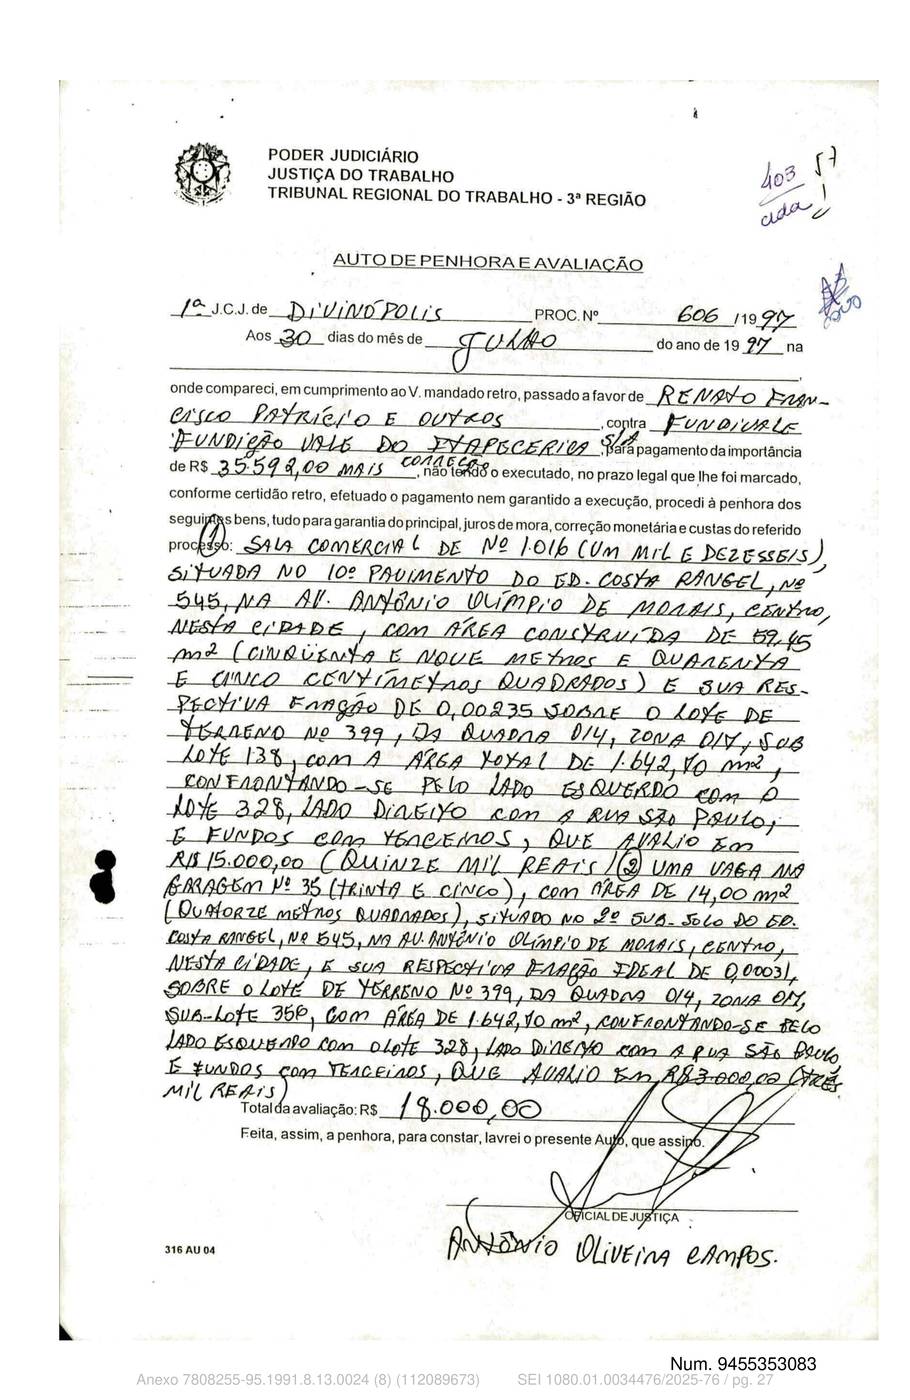 PODER JUDICIÁRIO
JUSTIÇA DO TRABALHO
TRIBUNAL REGIONAL DO TRABALHO - 3ª REGIÃO
403
57
AUTO DE PENHORA E AVALIAÇÃO
1ª J.C.J. de DIVINÓPOLIS PROC. Nº 606 /1997
Aos 30 dias do mês de JULHO do ano de 19 97 na
onde compareci, em cumprimento ao V. mandado retro, passado a favor de RENATO FRAN-
CISCO PATRÍCIO E OUTROS , contra FUNDIVALE
FUNDIÇÃO VALE DO ITAPECERICA S/A , para pagamento da importância
de R$ 35.592,00 MAIS CORREÇÃO , não tendo o executado, no prazo legal que lhe foi marcado,
conforme certidão retro, efetuado o pagamento nem garantido a execução, procedi à penhora dos
seguintes bens, tudo para garantia do principal, juros de mora, correção monetária e custas do referido
processo: 1 SALA COMERCIAL DE Nº 1.016 (UM MIL E DEZESSEIS),
SITUADA NO 10º PAVIMENTO DO ED. COSTA RANGEL, Nº
545, NA AV. ANTÔNIO OLÍMPIO DE MORAIS, CENTRO,
NESTA CIDADE, COM ÁREA CONSTRUÍDA DE 59,45
m2 (CINQÜENTA E NOVE METROS E QUARENTA
E CINCO CENTÍMETROS QUADRADOS) E SUA RES-
PECTIVA FRAÇÃO DE 0,00235 SOBRE O LOTE DE
TERRENO Nº 399, DA QUADRA 014, ZONA 017, SUB
LOTE 138, COM A ÁREA TOTAL DE 1.642,70 m2,
CONFRONTANDO-SE PELO LADO ESQUERDO COM O
LOTE 328, LADO DIREITO COM A RUA SÃO PAULO,
E FUNDOS COM TERCEIROS, QUE AVALIO EM
R$ 15.000,00 (QUINZE MIL REAIS) 2 UMA VAGA NA
GARAGEM Nº 35 (TRINTA E CINCO), COM ÁREA DE 14,00 m2
(QUATORZE METROS QUADRADOS), SITUADO NO 2º SUB-SOLO DO ED.
COSTA RANGEL, Nº 545, NA AV. ANTÔNIO OLÍMPIO DE MORAIS, CENTRO,
NESTA CIDADE, E SUA RESPECTIVA FRAÇÃO IDEAL DE 0,00031,
SOBRE O LOTE DE TERRENO Nº 399, DA QUADRA 014, ZONA 017,
SUB-LOTE 356, COM ÁREA DE 1.642,70 m2, CONFRONTANDO-SE PELO
LADO ESQUERDO COM O LOTE 328, LADO DIREITO COM A RUA SÃO PAULO
E FUNDOS COM TERCEIROS, QUE AVALIO EM R$3.000,00 (TRÊS
MIL REAIS)
Total da avaliação: R$ 18.000,00
Feita, assim, a penhora, para constar, lavrei o presente Auto, que assino.
OFICIAL DE JUSTIÇA
ANTÔNIO OLIVEIRA CAMPOS.
316 AU 04
Num. 9455353083
Anexo 7808255-95.1991.8.13.0024 (8) (112089673) SEI 1080.01.0034476/2025-76 / pg. 27